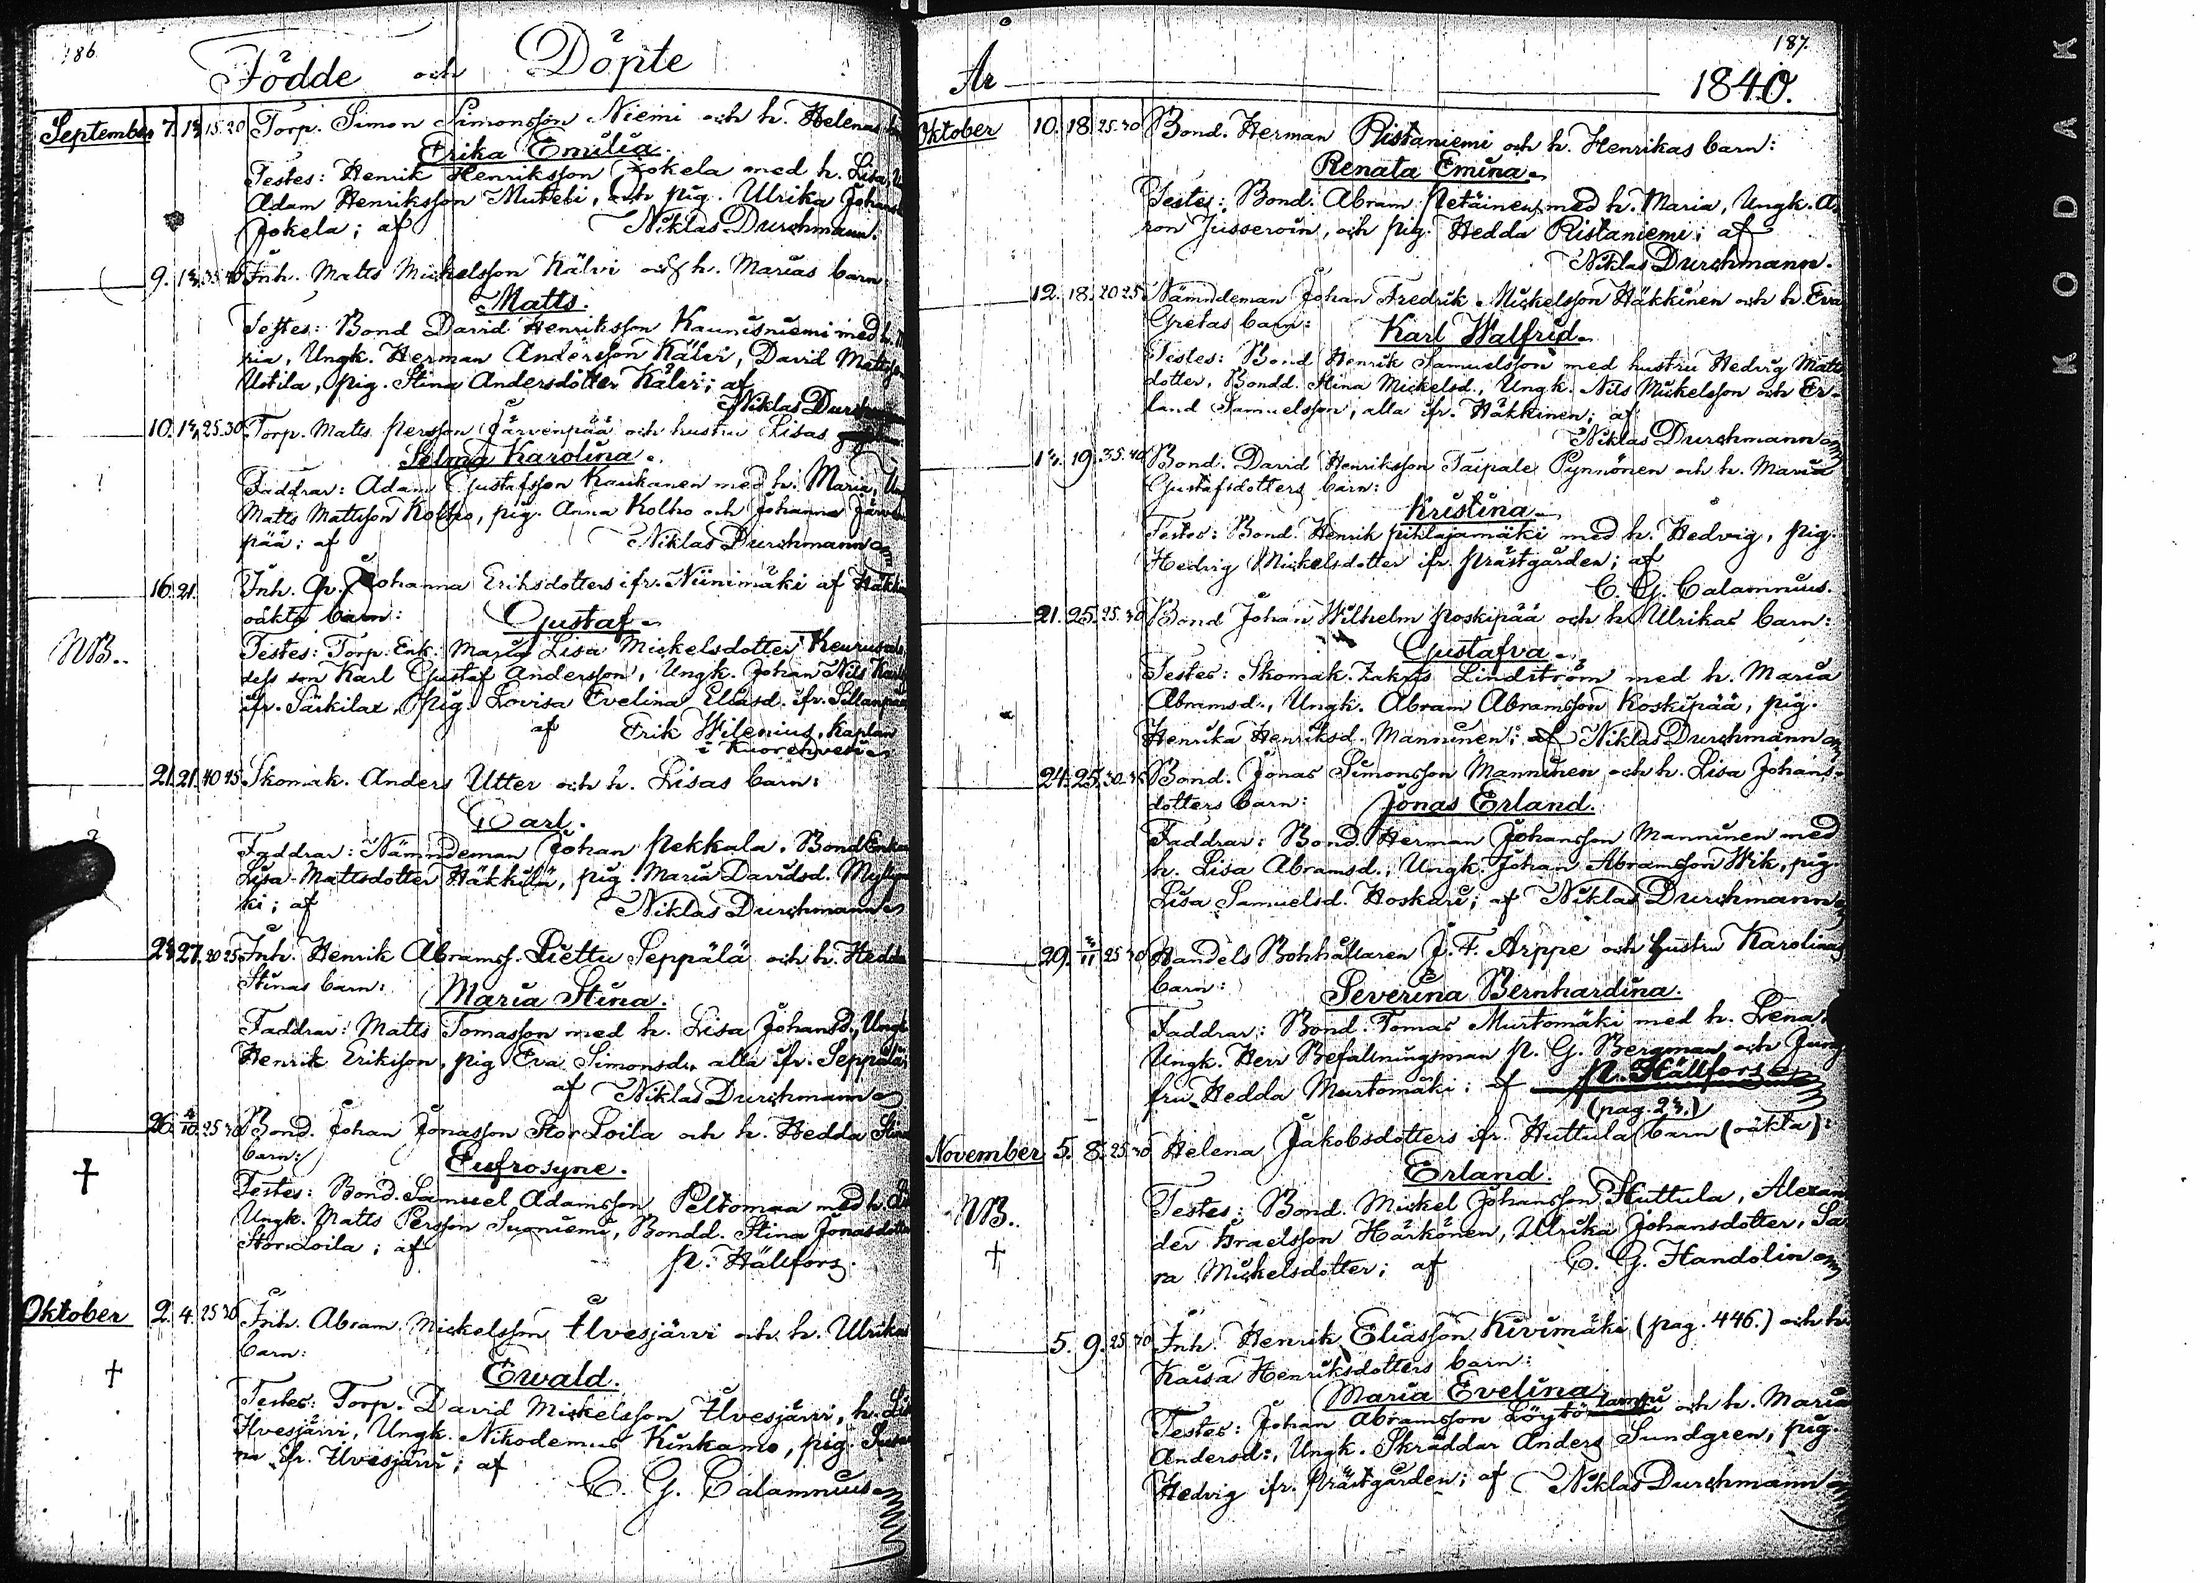 186.
Födde och Döpte
September 7. 13. 15.20 Torp. Simon Simonsson Niemi och h. Helenas
Erika Emilia.
Testes: Henrik Henriksson Jokela med h. Lisa,
Adam Henriksson Mutebi, och pig. Ulrika Johans
Jokela; af Niklas Durchmann.
9. 13. 35.40 Inh. Matts Mickelsson Kälvi och h. Marias barn:
Matts.
Testes: Bond David Henriksson Kaunisniemi med h. M
ria, Ungk. Herman Andersson Kälvi, David Mattsson
Uotila, pig. Stina Andersdotter Kälvi; af
Niklas Durchmann
10. 13. 25.30 Torp. Matts Persson Järvenpää och hustru Lisas
Selma Karolina.
Faddrar: Adam Gustafsson Kaukanen med h. Maria, Un
Matts Mattsson Kolho, pig. Anna Kolho och Johanna Järven
pää; af Niklas Durchmann
16. 21. Inh. Johanna Eriksdotters ifr. Niinimäki af Häkki
oäkta barn:
Gustaf.
NB.. Testes: Torp. Enk. Maria Lisa Mickelsdotter Keurusel
dess son Karl Gustaf Andersson, Ungk. Johan Nils Karls
ifr. Särkilax, pig. Lovisa Evelina Eliasd. ifr. Sillanpää
af Erik Wilenius, Kaplan
i Kuorehvesi
21. 21. 40 45 Skomak. Anders Utter och h. Lisas barn:
Carl.
Faddrar: Nämndeman Johan Pekkala, Bond Enka
Lisa Mattsdotter Häkkilä, pig. Maria Davidsd. Myllym
ki; af Niklas Durchmann
23. 27. 20 25 Inh. Henrik Abramss. Liettu Seppälä och h. Hedda
Stinas barn: Maria Stina.
Faddrar: Matts Tomasson med h. Lisa Johansd., Ungk.
Henrik Eriksson, pig Eva Simonsd. alla ifr. Seppälä;
af Niklas Durchmann
26. 4/10. 25 30 Bond. Johan Jonasson Stor Loila och h. Hedda Stina
barn: Eufrosyne.
† Testes: Bond. Samuel Adamsson Peltomaa med h.
Ungk. Matts Persson Suoniemi, Bondd. Stina Jonasdotter
Stor Loila; af P. Hällfors.
Oktober 2. 4. 25 30 Inh. Abram Mickelsson Ilvesjärvi och h. Ulrikas
barn:
† Ewald.
Testes: Torp. David Mickelsson Ilvesjärvi, h. Lis
Ilvesjärvi, Ungk. Nikodemus Kinkamo, pig. Susan
na ifr. Ilvesjärvi; af
C. G. Calamnius
187.
År 1840.
Oktober 10. 18. 25.30 Bond. Herman Ristaniemi och h. Henrikas barn:
Renata Emina.
Testes: Bond. Abram Petäinen med h. Maria, Ungk. Aa
ron Jusseroin, och pig. Hedda Ristaniemi; af
Niklas Durchmann.
12. 18. 20 25 Nämndeman Johan Fredrik Mickelsson Häkkinen och h. Eva
Gretas barn: Karl Walfrid.
Testes: Bond Henrik Samuelsson med hustru Hedvig Matts
dotter, Bondd. Stina Mickelsd., Ungk. Nils Mickelsson och Er-
land Samuelsson, alla ifr. Häkkinen; af
Niklas Durchmann
19. 35.40 Bond. David Henriksson Taipale Pynnönen och h. Maria
Gustafsdotters barn:
Kristina.
Testes: Bond. Henrik Pihlajamäki med h. Hedvig, pig.
Hedvig Mickelsdotter ifr. Prästgården; af
C. G. Calamnius.
21. 25. 25.30 Bond Johan Wilhelm Koskipää och h. Ulrikas barn:
Gustafva.
Testes: Skomak. Zakris Lindström med h. Maria
Abramsd., Ungk. Abram Abramsson Koskipää, pig.
Henrika Henriksd. Manninen; af Niklas Durchmann
24. 25. 30.35 Bond. Jonas Simonsson Manninen och h. Lisa Johans-
dotters barn: Jonas Erland.
Faddrar: Bond. Herman Johansson Manninen med
h. Lisa Abramsd., Ungk. Johan Abramsson Wik, pig.
Lisa Samuelsd. Hoskari; af Niklas Durchmann
29. /11 25 30 Handels Bokhållaren J. F. Arppe och hustru Karolinas
barn: Severina Bernhardina.
Faddrar: Bond. Tomas Murtomäki med h. Lena,
Ungk. Herr Befallningsman P. G. Bergman och Jung
fru Hedda Murtomäki; af P. Hällfors
(pag. 23.)
November 5. 8. 25 30 Helena Jakobsdotters ifr. Huttula barn (oäkta):
Erland.
NB. † Testes: Bond. Mickel Johansson Huttula, Alexan
der Israelsson Härkönen, Ulrika Johansdotter, Sa
ra Mickelsdotter; af C. G. Handolin
5. 9. 25 30 Inh. Henrik Eliasson Kivimäki (pag. 446.) och h.
Kaisa Henriksdotters barn:
Maria Evelina
Testes: Johan Abramsson Löytölampi och h. Maria
Andersd:, Ungk. Skräddar Anders Sundgren, pig.
Hedvig ifr. Prästgården; af Niklas Durchmann
KODAK